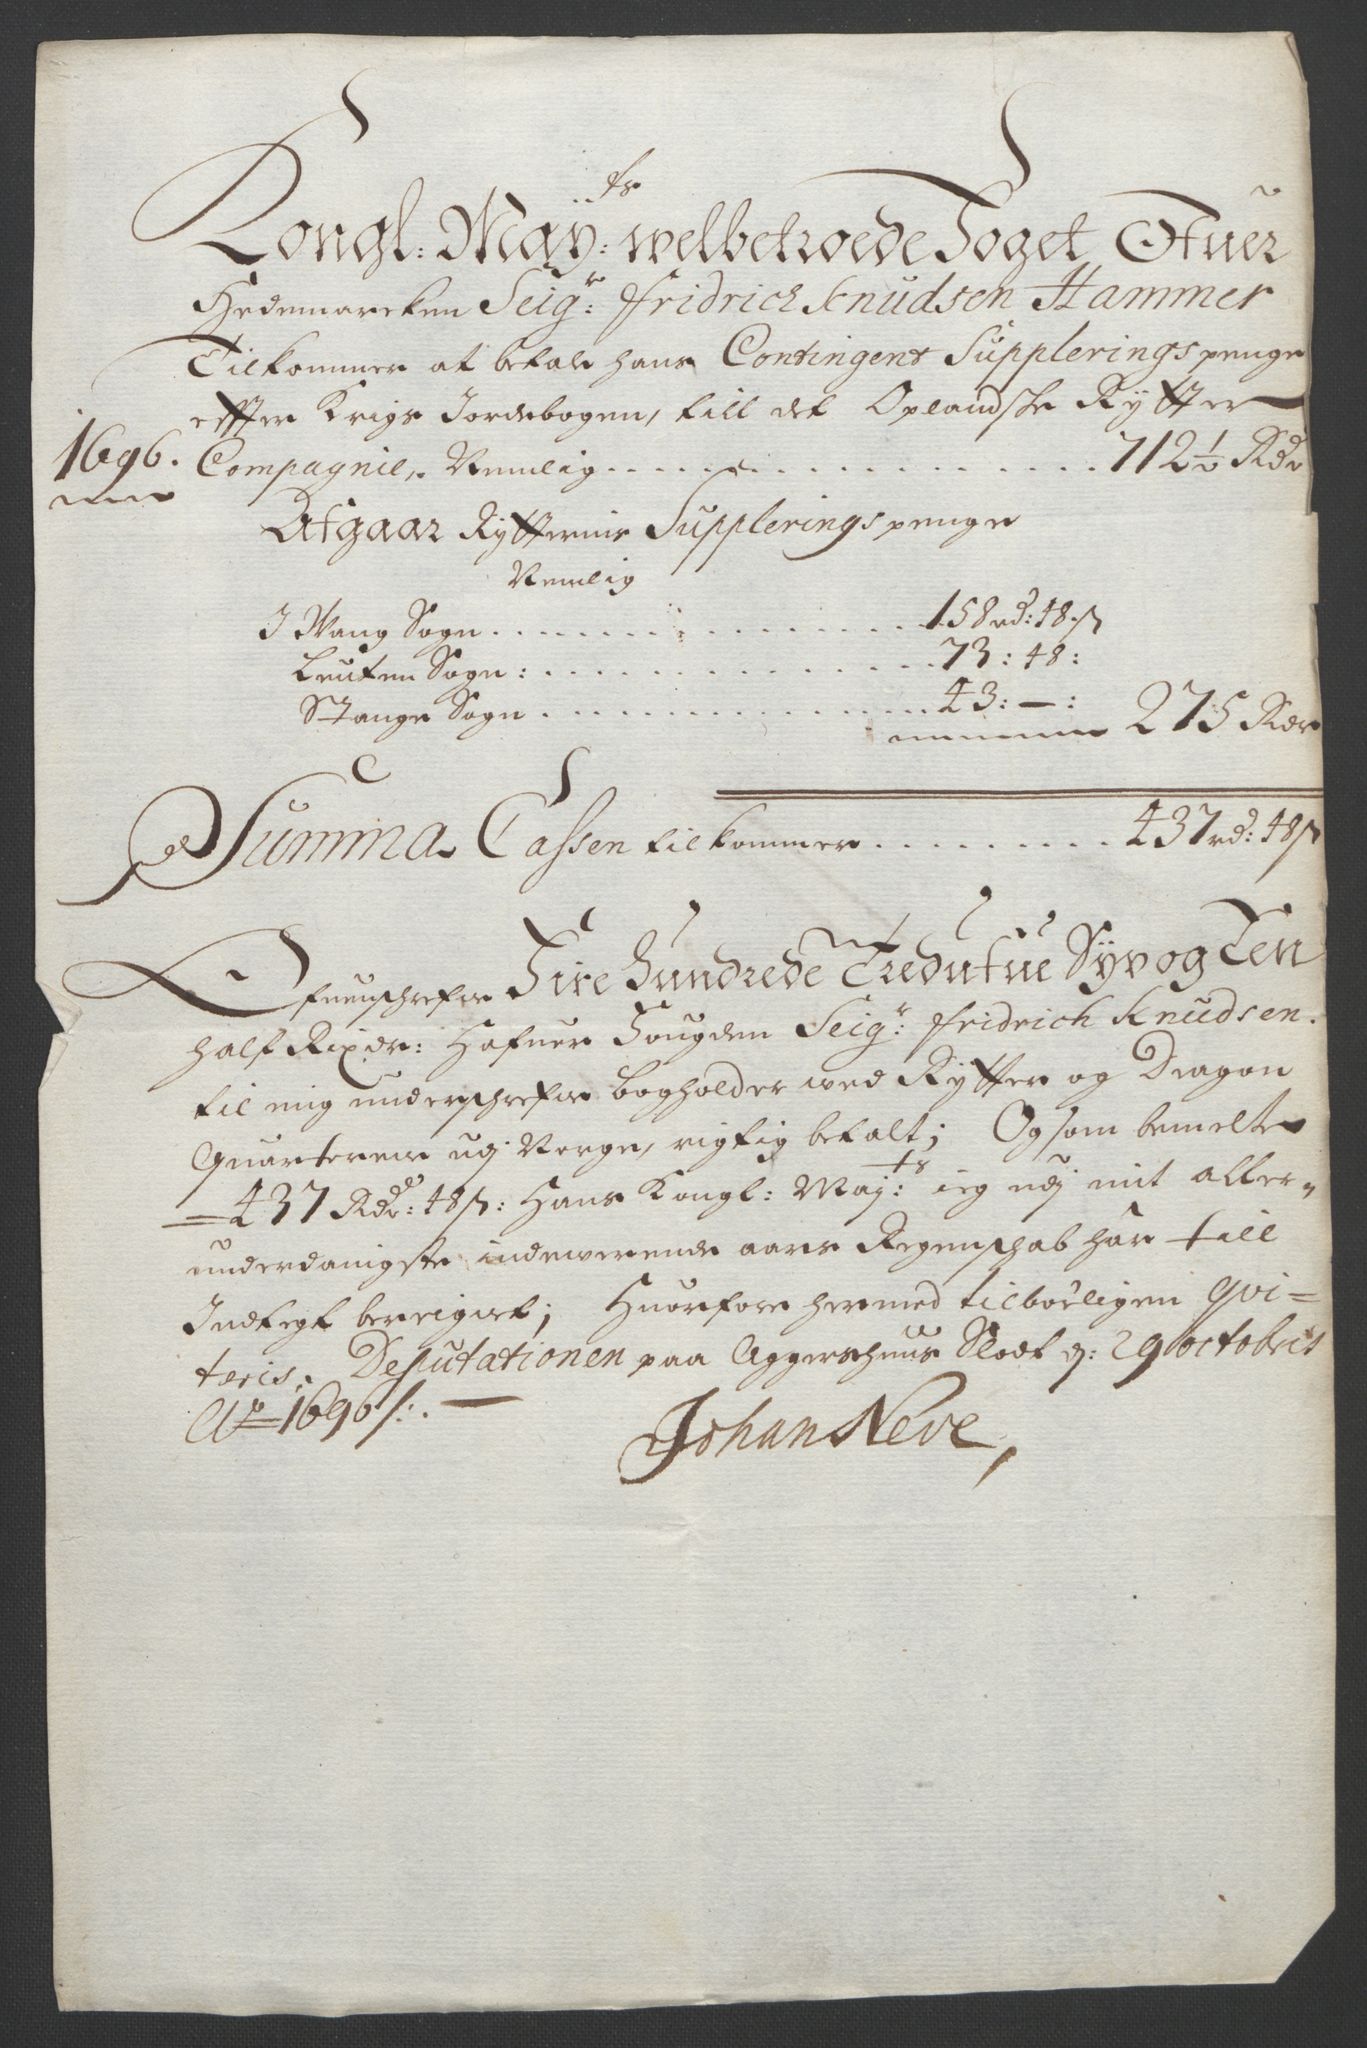 Kongl: Maÿ:ts welbetroede Foget Ofuer
Hedemarcken Seig:r Fridrich Knudsen Hammer
Tilkommer at betale hans Contingent Supplerings penge
effter Krigs Jordebogen, till det Oplandske Rytter
1696. Compagnie, Nemlig . . . . . . . . . . 712½ Rdr
Afgaar Rytternis Supplerings penge
Nemlig
I Wang Sogn . . . . . . . . . . 158 rd: 48 s
Leuten Sogn: . . . . . . . . . . 73: 48:
Stange Sogn . . . . . . . . . . 43: — : 275 Rdr
Summa Cassen tilkommer . . . . . . . . . 437 rd: 48 s
Ofuenschrefne Fire Hundrede Tredutue Sÿv og Een
half Rixdr: Hafuer Fougden Seig:r Fridrich Knudsen.
til mig underschrefne bogholder wed Rytter og Dragon
Quarterene udj Norge, rigtig betalt; Og som bemelte
= 437 Rdr: 48 s: Hans Kongl: Maj:ts ieg udj mit aller-
underdanigste indewerende aars Regenschab har till
Indtegt bereignet; Huorfore hermed tilbørligen qvi=
teris. Deputationen paa Aggershuus Slodt d: 29 octobris
Ao 1696 /:. —
Johan Neve,